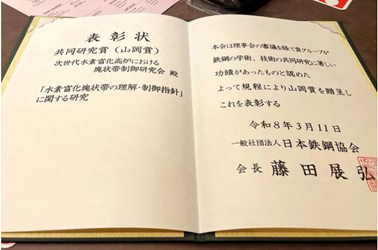 表彰状
共同研究賞（山岡賞）
次世代水素富化高炉における
塊状帯制御研究会 殿
「水素富化塊状帯の理解・制御指針」
に関する研究
本会は理事会の審議を経て貴グループが
鉄鋼の学術、技術の共同研究に著しい
功績があったものと認めた
よって規程により山岡賞を贈呈し
これを表彰する
令和８年３月１１日
一般社団法人 日本鉄鋼協会
会長 藤田展弘